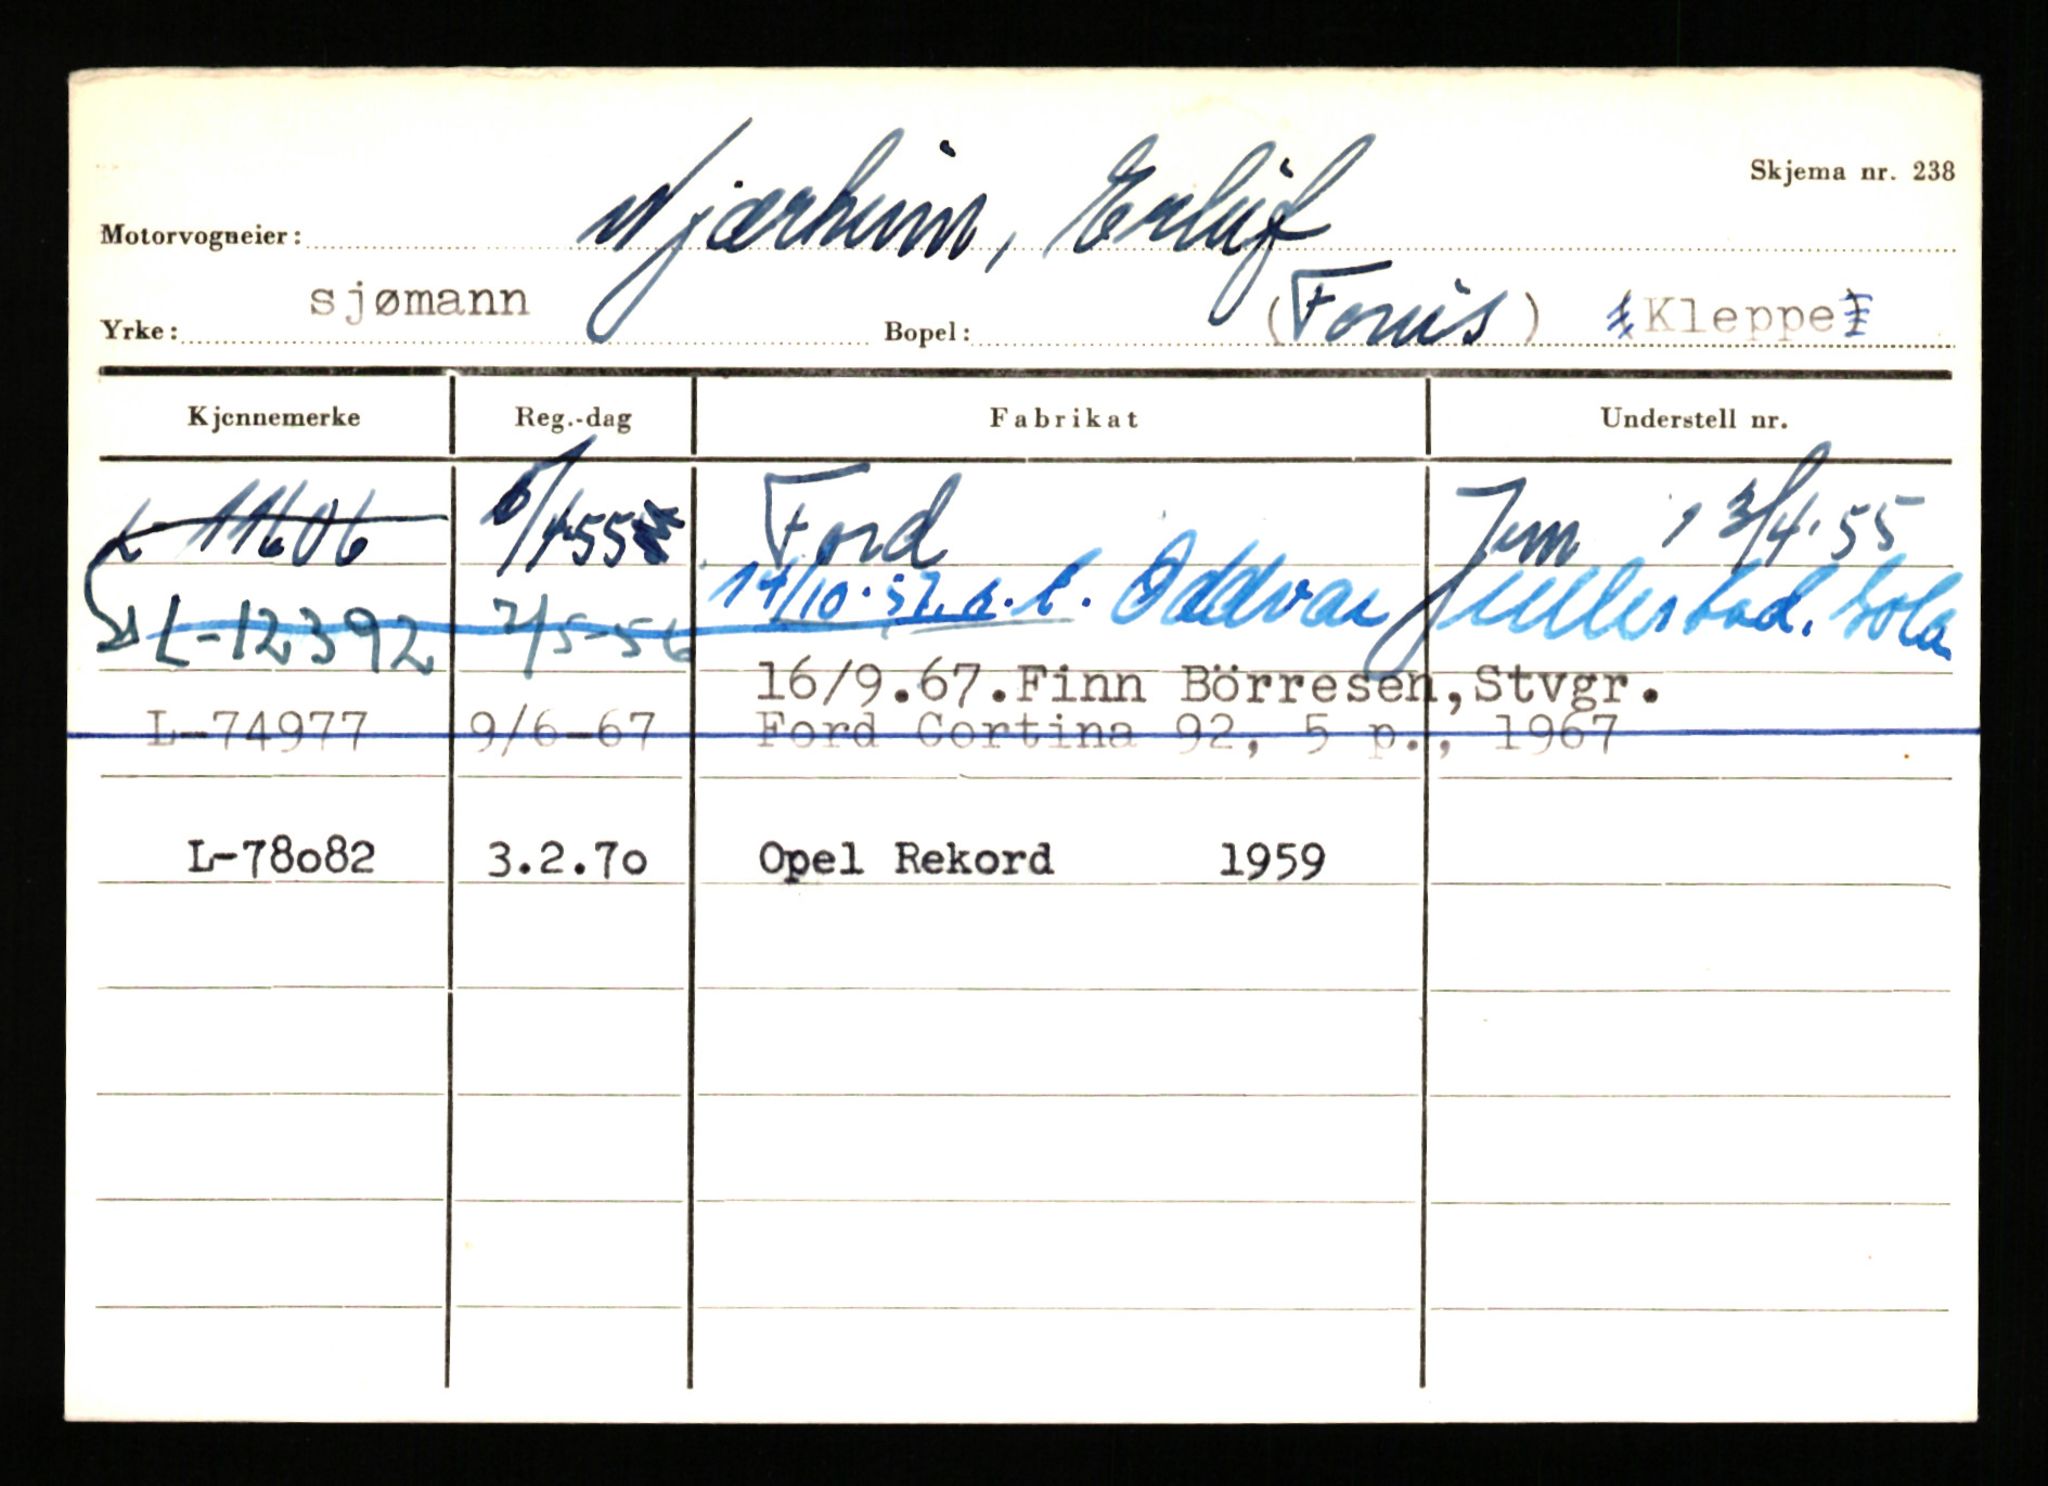 Skjema nr. 238
Motorvogneier: Njærheim, Erleif
Yrke: sjømann Bopel: (Foruis) (Kleppe)
Kjennemerke Reg.-dag Fabrikat Understell nr.
L 11606 6/4-55 Ford 13/4.55
L-12392 2/5-56 14/10.57. Oddvar Sola
16/9.67.Finn Börresen,Stvgr.
L-74977 9/6-67 Ford Cortina 92, 5 p., 1967
L-78o82 3.2.7o Opel Rekord 1959